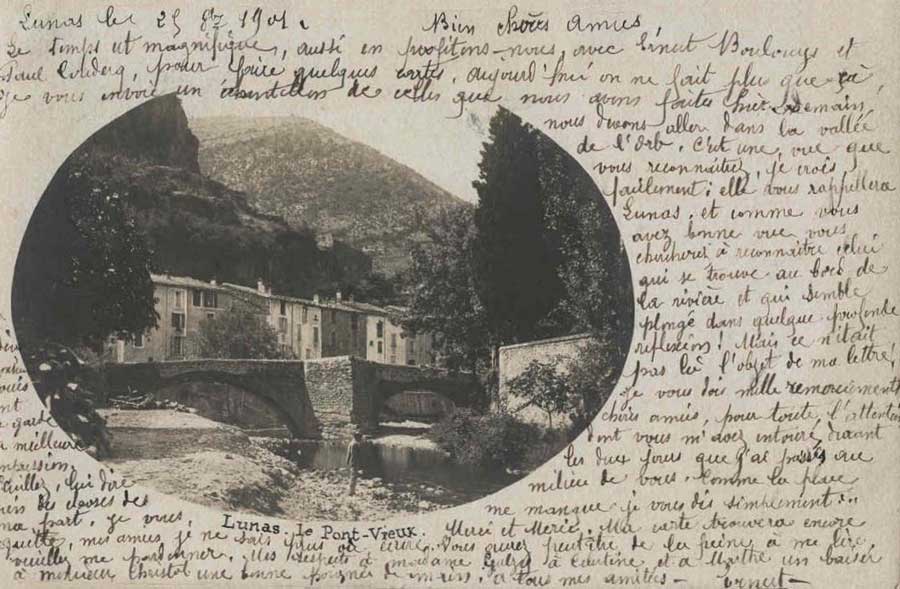 Lunas le 25 1901.
Bien Chères amies,
Le temps est magnifique, aussi en profitons-nous, avec Ernest Boulouys et
Paul pour faire quelques cartes, aujourd'hui on ne fait plus que çà
Je vous envoie un échantillon de celles que nous avons faites hier. Demain,
nous devons aller dans la vallée
de l'Orb. C'est une vue que
vous reconnaîtrez, je crois,
facilement: elle vous rappellera
Lunas, et comme vous
avez bonne vue vous
chercherez à reconnaître celui
qui se trouve au bord de
la rivière et qui semble
plongé dans quelque profonde
réflexion! Mais ce n'était
pas là l'objet de ma lettre!
Je vous dois mille remerciements
chères amies, pour toute l'attention
dont vous m'avez entouré durant
les deux jours que j'ai passés au
milieu de vous. Comme la place
me manque je vous dis simplement:
Merci et Merci. Ma carte trouvera encore
Vous aurez peut-être de la peine à me lire,
garde
meilleure
impression.
dire
des choses de
ma part. Je vous
quitte, mes amies, je ne sais plus où écrire.
veuillez me pardonner. Mes respects à madame à et à Marthe un baiser
à monsieur Christol une bonne poignée de mains, à tous mes amitiés — Ernest —
Lunas. Le Pont-Vieux.